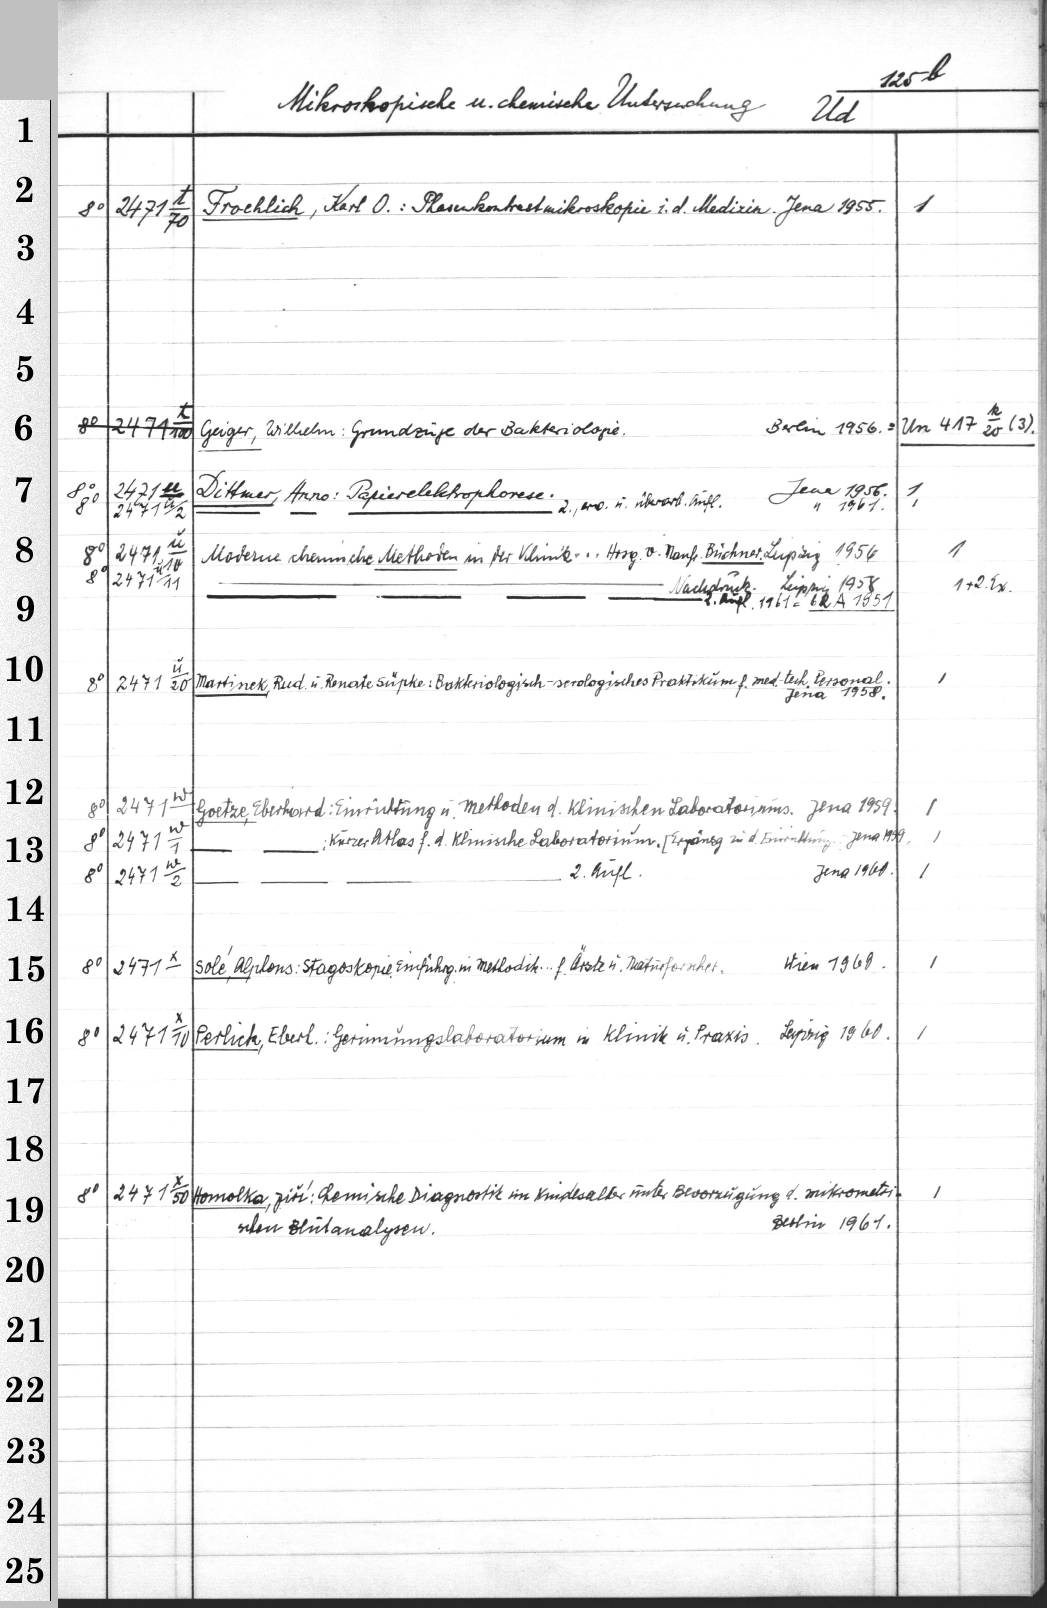 125 b
Mikroskopische u. chemische Untersuchung Ud
1
2
8° 2471 t/70 Froehlich, Karl O.: Phasenkontrastmikroskopie i. d. Medizin. Jena 1955. 1
3
4
5
6
8° 2471 t/100 Geiger, Wilhelm: Grundzüge der Bakteriologie. Berlin 1956. = Un 417 k/20 (3).
7
8° 2471 u Dittmer, Anno: Papierelektrophorese. Jena 1956. 1
8° 2471 u/2 2., erw. u. überarb. Aufl. " 1961. 1
8
8° 2471 u/10 Moderne chemische Methoden in der Klinik... Hrsg. v. Manf. Büchner. Leipzig 1956 1
8° 2471 u/11 Nachdruck. Leipzig 1958 1+2. Ex.
9
2. Aufl. 1961 = 62 A 1951
10
8° 2471 u/20 Martinek, Rud. u. Renate Süpke: Bakteriologisch-serologisches Praktikum f. med.-tech. Personal.
Jena 1958. 1
11
12
8° 2471 w Goetze, Eberhard: Einrichtung u. Methoden d. klinischen Laboratoriums. Jena 1959. 1
13
8° 2471 w/1 : Kurzer Atlas f. d. klinische Laboratorium. [Ergänzg zu d. Einrichtung.. Jena 1959. 1
8° 2471 w/2 2. Aufl. Jena 1960. 1
14
15
8° 2471 x Solé, Alphons: Stagoskopie. Einführg. in Methodik... f. Ärzte u. Naturforscher. Wien 1960. 1
16
8° 2471 x/10 Perlick, Eberh.: Gerinnungslaboratorium in Klinik u. Praxis. Leipzig 1960. 1
17
18
19
8° 2471 x/50 Homolka, Jiří: Chemische Diagnostik im Kindesalter unter Bevorzugung d. mikrometri-
schen Blutanalysen. Berlin 1961. 1
20
21
22
23
24
25